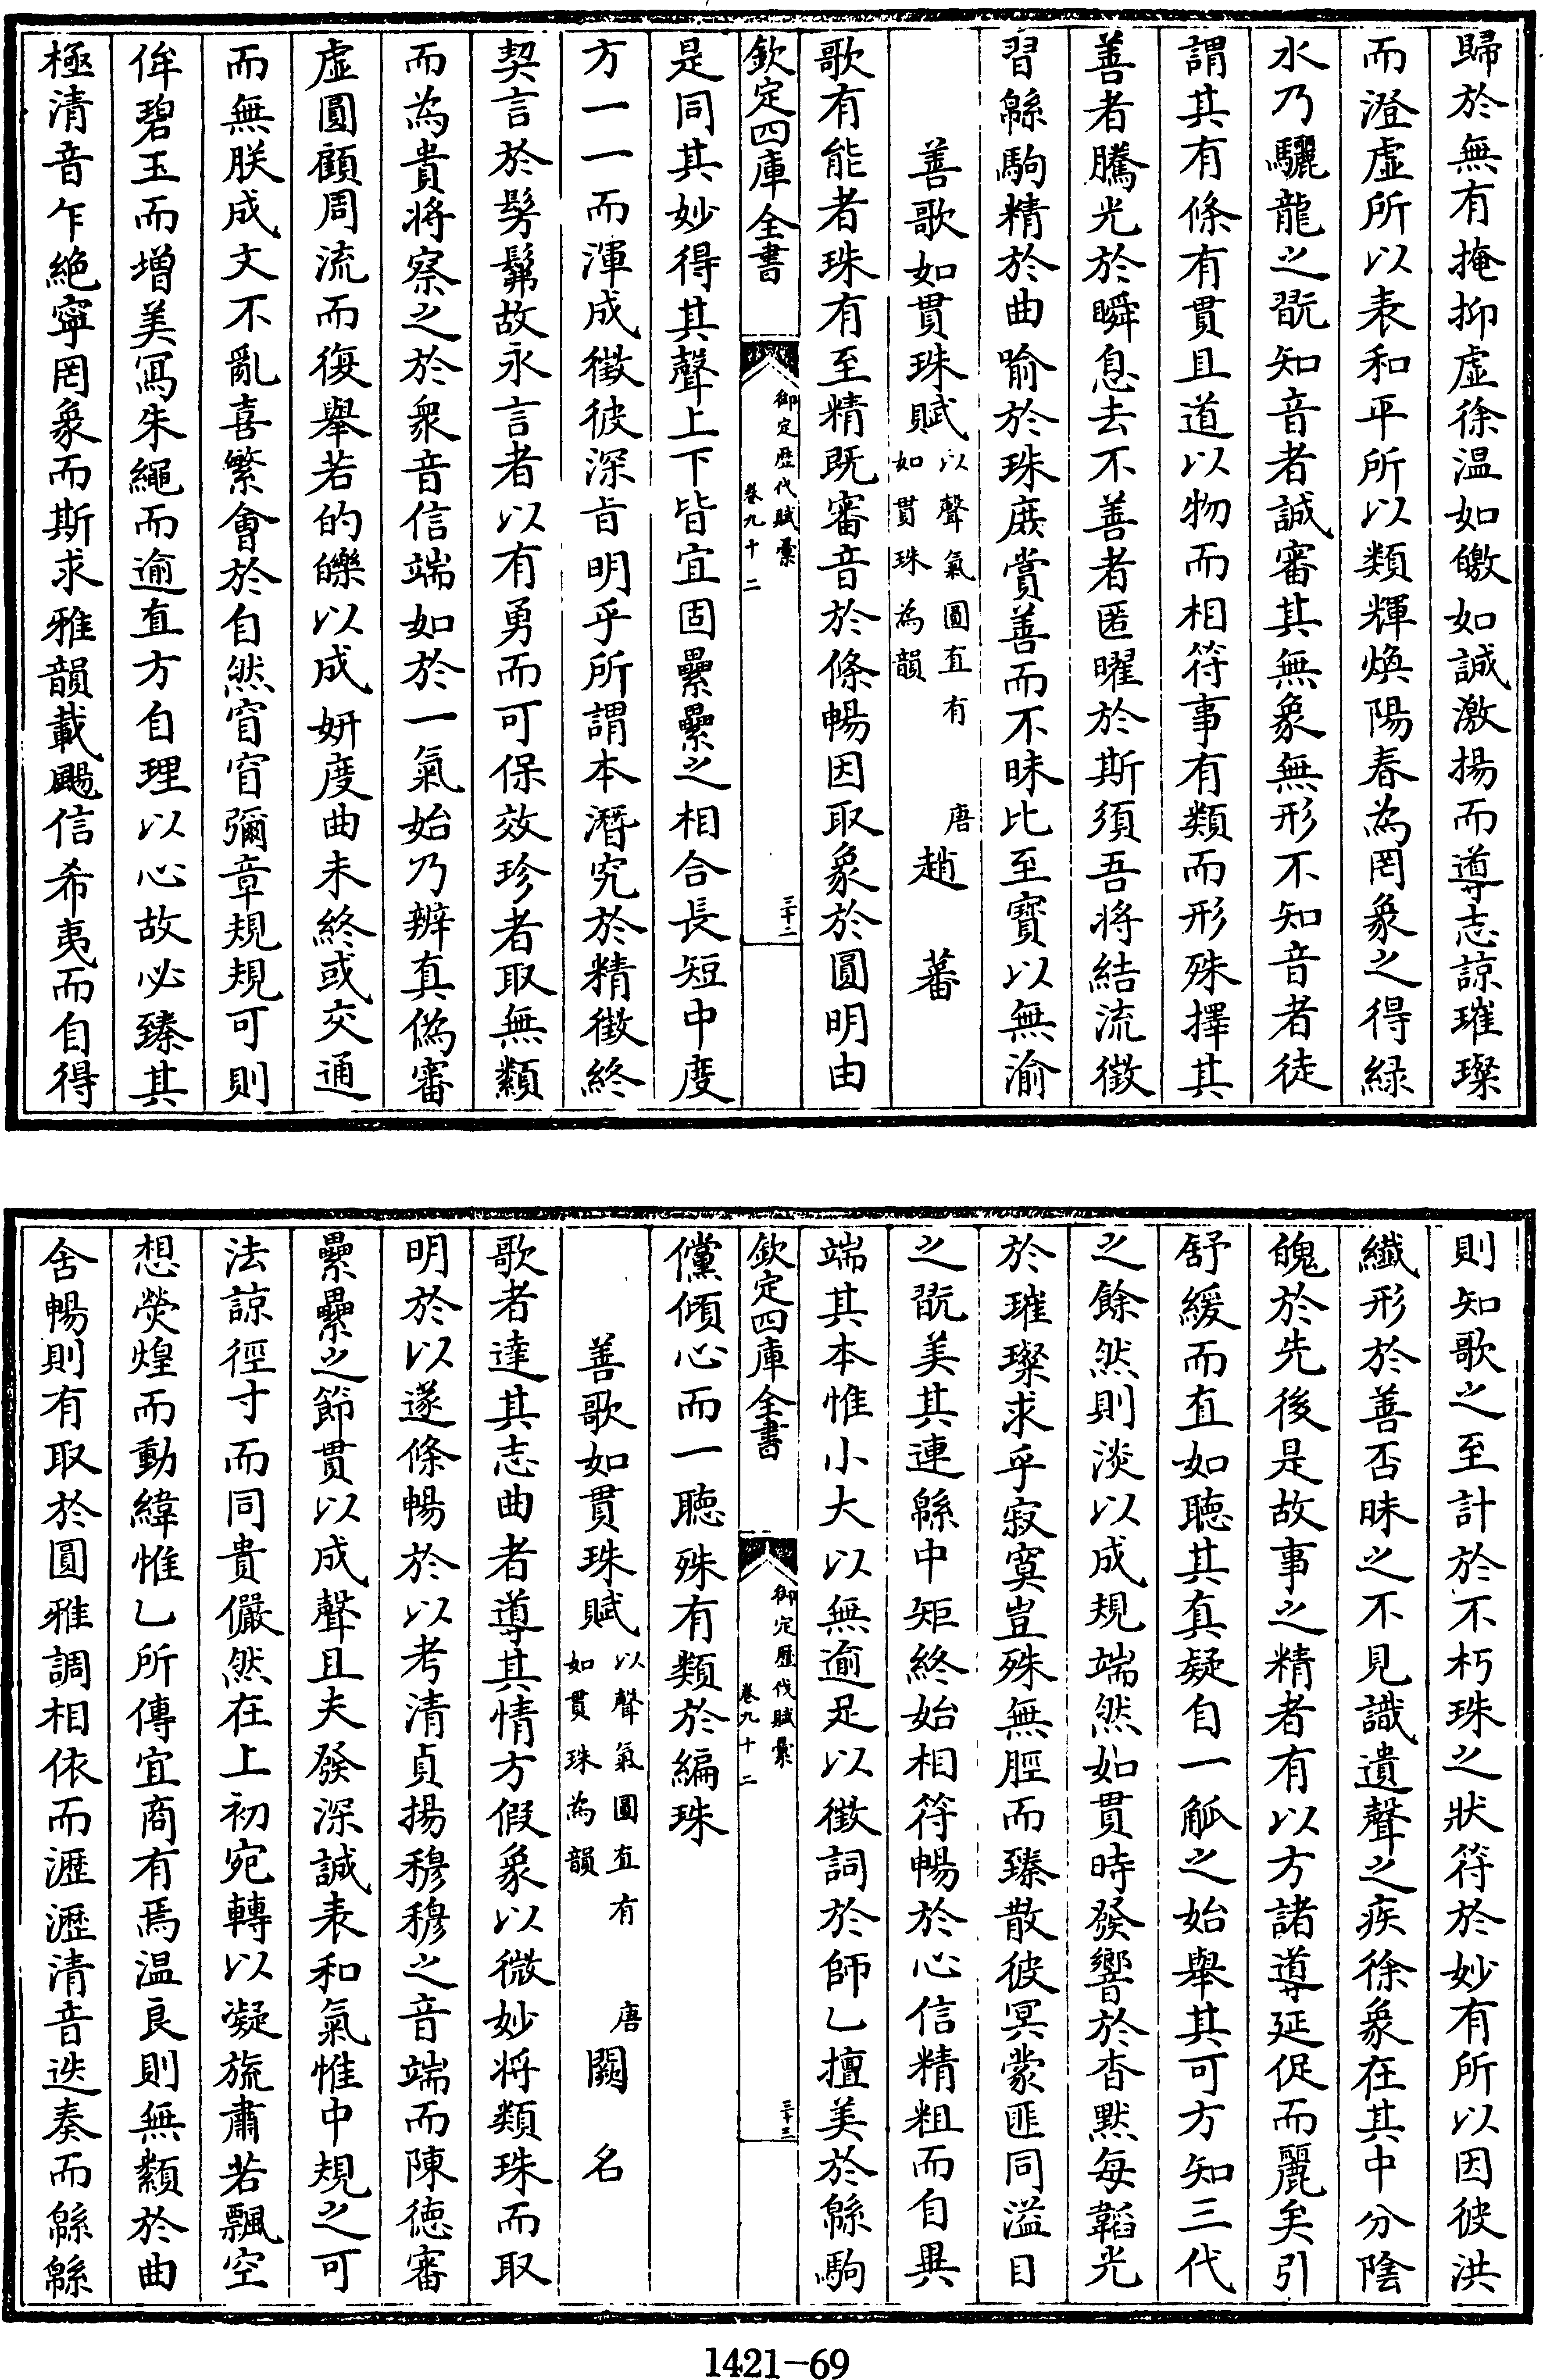 歸於無有掩抑虛徐温如皦如誠激揚而導志諒璀璨
而澄虛所以表和平所以類輝煥陽春為罔象之得緑
水乃驪龍之翫知音者誠審其無象無形不知音者徒
謂其有條有貫且道以物而相符事有類而形殊擇其
善者騰光於瞬息去不善者匿曜於斯須吾将結流徵
習緜駒精於曲喻於珠庻賞善而不昧比至寳以無渝
善歌如貫珠賦以聲氣圓直有如貫珠為韻 唐趙蕃
歌有能者珠有至精既審音於條暢因取象於圓明由
欽定四庫全書 御定歷代賦彙 卷九十二 三十二
是同其妙得其聲上下皆宜固纍纍之相合長短中度
方一一而渾成徵彼深㫖明乎所謂本潛究於精徵終
契言於髣髴故永言者以有勇而可保效珍者取無纇
而為貴将察之於衆音信端如於一氣始乃辨真偽審
虛圓顧周流而復舉若的皪以成妍度曲未終或交通
而無朕成文不亂喜繁會於自然窅窅彌章規規可則
侔碧玉而增美冩朱繩而逾直方自理以心故必臻其
極清音乍絶寧罔象而斯求雅韻載颺信希夷而自得
則知歌之至計於不朽珠之狀符於妙有所以因彼洪
纖形於善否昧之不見識遺聲之疾徐象在其中分陰
魄於先後是故事之精者有以方諸導延促而麗矣引
舒緩而直如聽其真疑自一觚之始舉其可方知三代
之餘然則淡以成規端然如貫時發響於杳默每韜光
於璀璨求乎寂寞豈殊無脛而臻散彼冥蒙匪同溢目
之翫美其連緜中矩終始相符暢於心信精粗而自異
端其本惟小大以無逾足以徵詞於師乙擅美於緜駒
欽定四庫全書 御定歷代賦彙 卷九十二 三十三
儻傾心而一聽殊有類於編珠
善歌如貫珠賦以聲氣圓直有如貫珠為韻 唐闕名
歌者達其志曲者導其情方假象以微妙将類珠而取
明於以遂條暢於以考清貞揚穆穆之音端而陳徳審
纍纍之節貫以成聲且夫發深誠表和氣惟中規之可
法諒徑寸而同貴儼然在上初宛轉以凝旒肅若飄空
想熒煌而動緯惟乙所傳宜商有焉温良則無纇於曲
舍暢則有取於圓雅調相依而瀝瀝清音迭奏而緜緜
1421—69